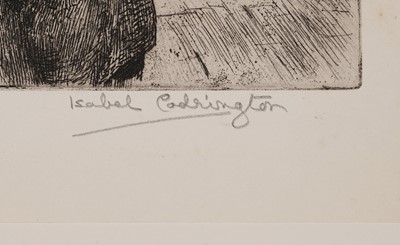 Isabel Codrington